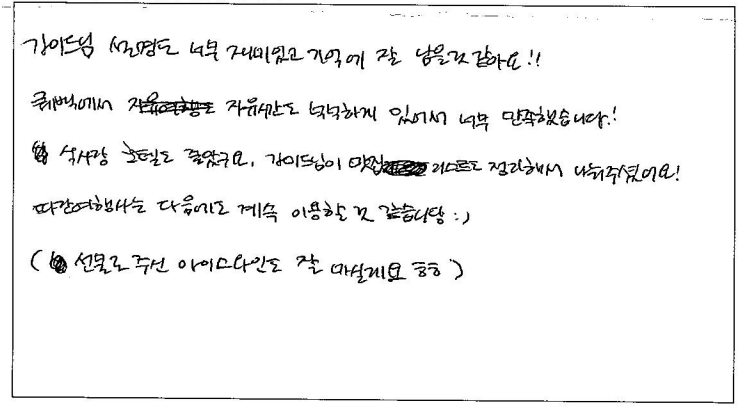 강이드님 설명도 너무 재미있고 기억에 잘 남을것 같아요!!
퀘벡에서 자유시간도 넉넉하게 있어서 너무 만족했습니다!
식사랑 호텔도 좋았구요, 강이드님이 맛집 리스트도 정리해서 나눠주셨어요!
따잔여행사는 다음에도 계속 이용할 것 같습니당 :)
( 선물로 주신 아이스와인도 잘 마실게요 ㅎㅎ )